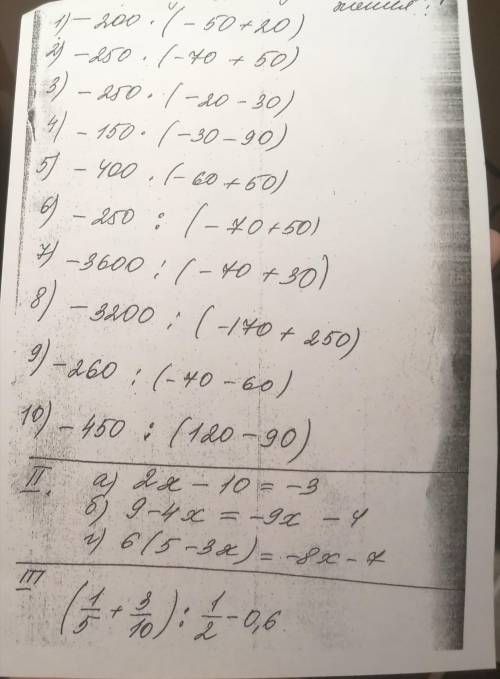 жения:
1) -200 · (-50+20)
2) -250 · (-70 + 50)
3) -250 · (-20 - 30)
4) -150 · (-30 - 90)
5) -400 · (-60+50)
6) -250 : (-70+50)
7) -3600 : (-70 + 30)
8) -3200 : (-170 + 250)
9) -260 : (-70 - 60)
10) -450 : (120-90)
II. а) 2x - 10 = -3
б) 9-4x = -9x - 4
г) 6(5-3x) = -8x-7
III
(1/5 + 3/10) : 1/2 - 0,6